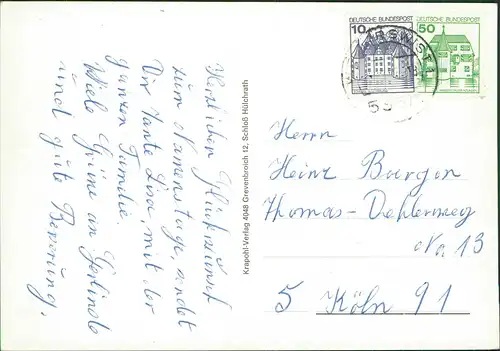 Herzlichen Glückwunsch
zum Namenstage, sendet
Dir Tante Lisa, mit der
ganzen Familie.
Viele Grüße an Gerlinde
und gute Besserung.
Krapohl-Verlag 4048 Grevenbroich 12, Schloß Hülchrath
DEUTSCHE BUNDESPOST
10
DEUTSCHE BUNDESPOST
50
Herrn
Heinz Burgon
Thomas-Dehlerweg
No. 13
5 Köln 91